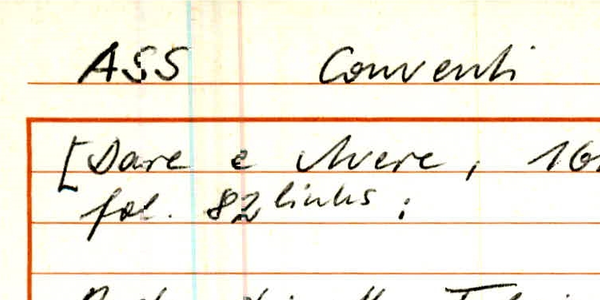 ASS Conventi
[Dare e Avere, 16
fol. 82 links ;